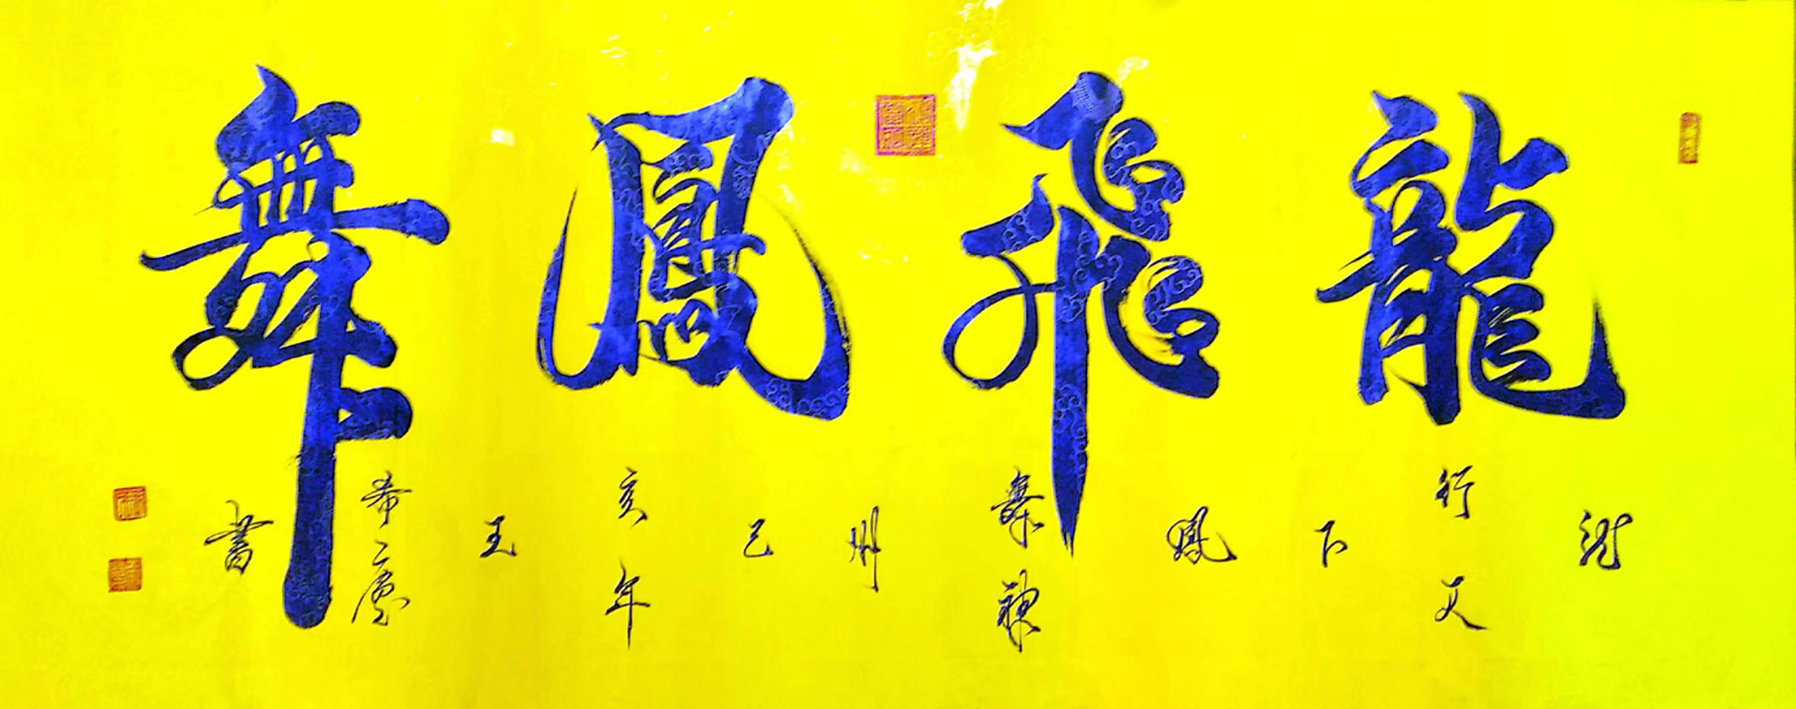 龍飛鳳舞
龍行天下鳳舞神州
己亥年王希書